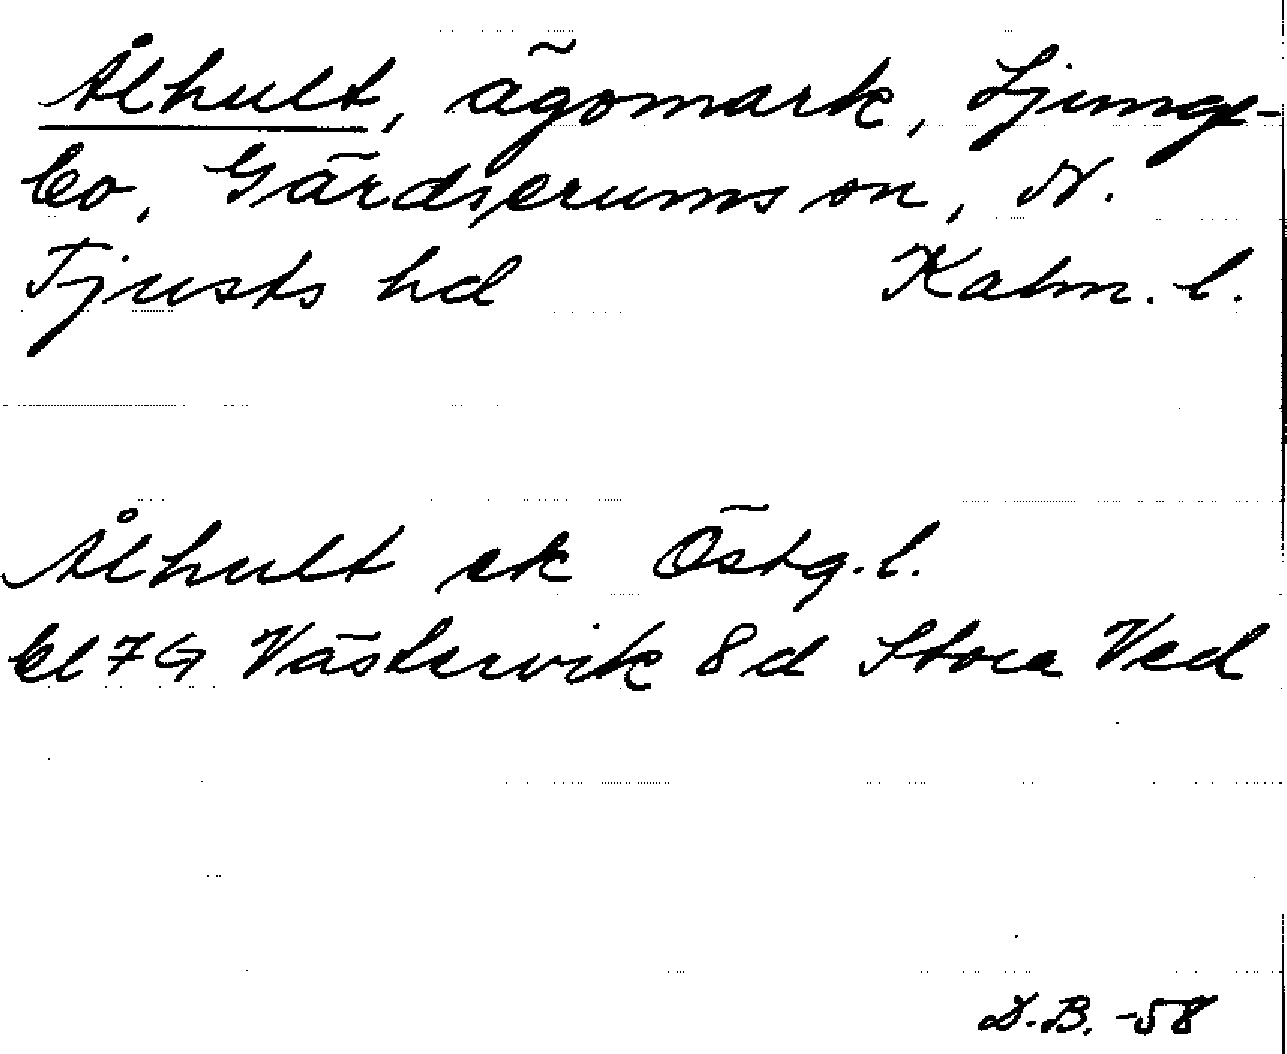 Ålhult, ägomark, Ljunge-
bo, Gärdserums sn, N.
Tjusts hd Kalm. l.
Ålhult ek Östg. l.
bl 7G Västervik 8d Stora Ved
D.B. -58